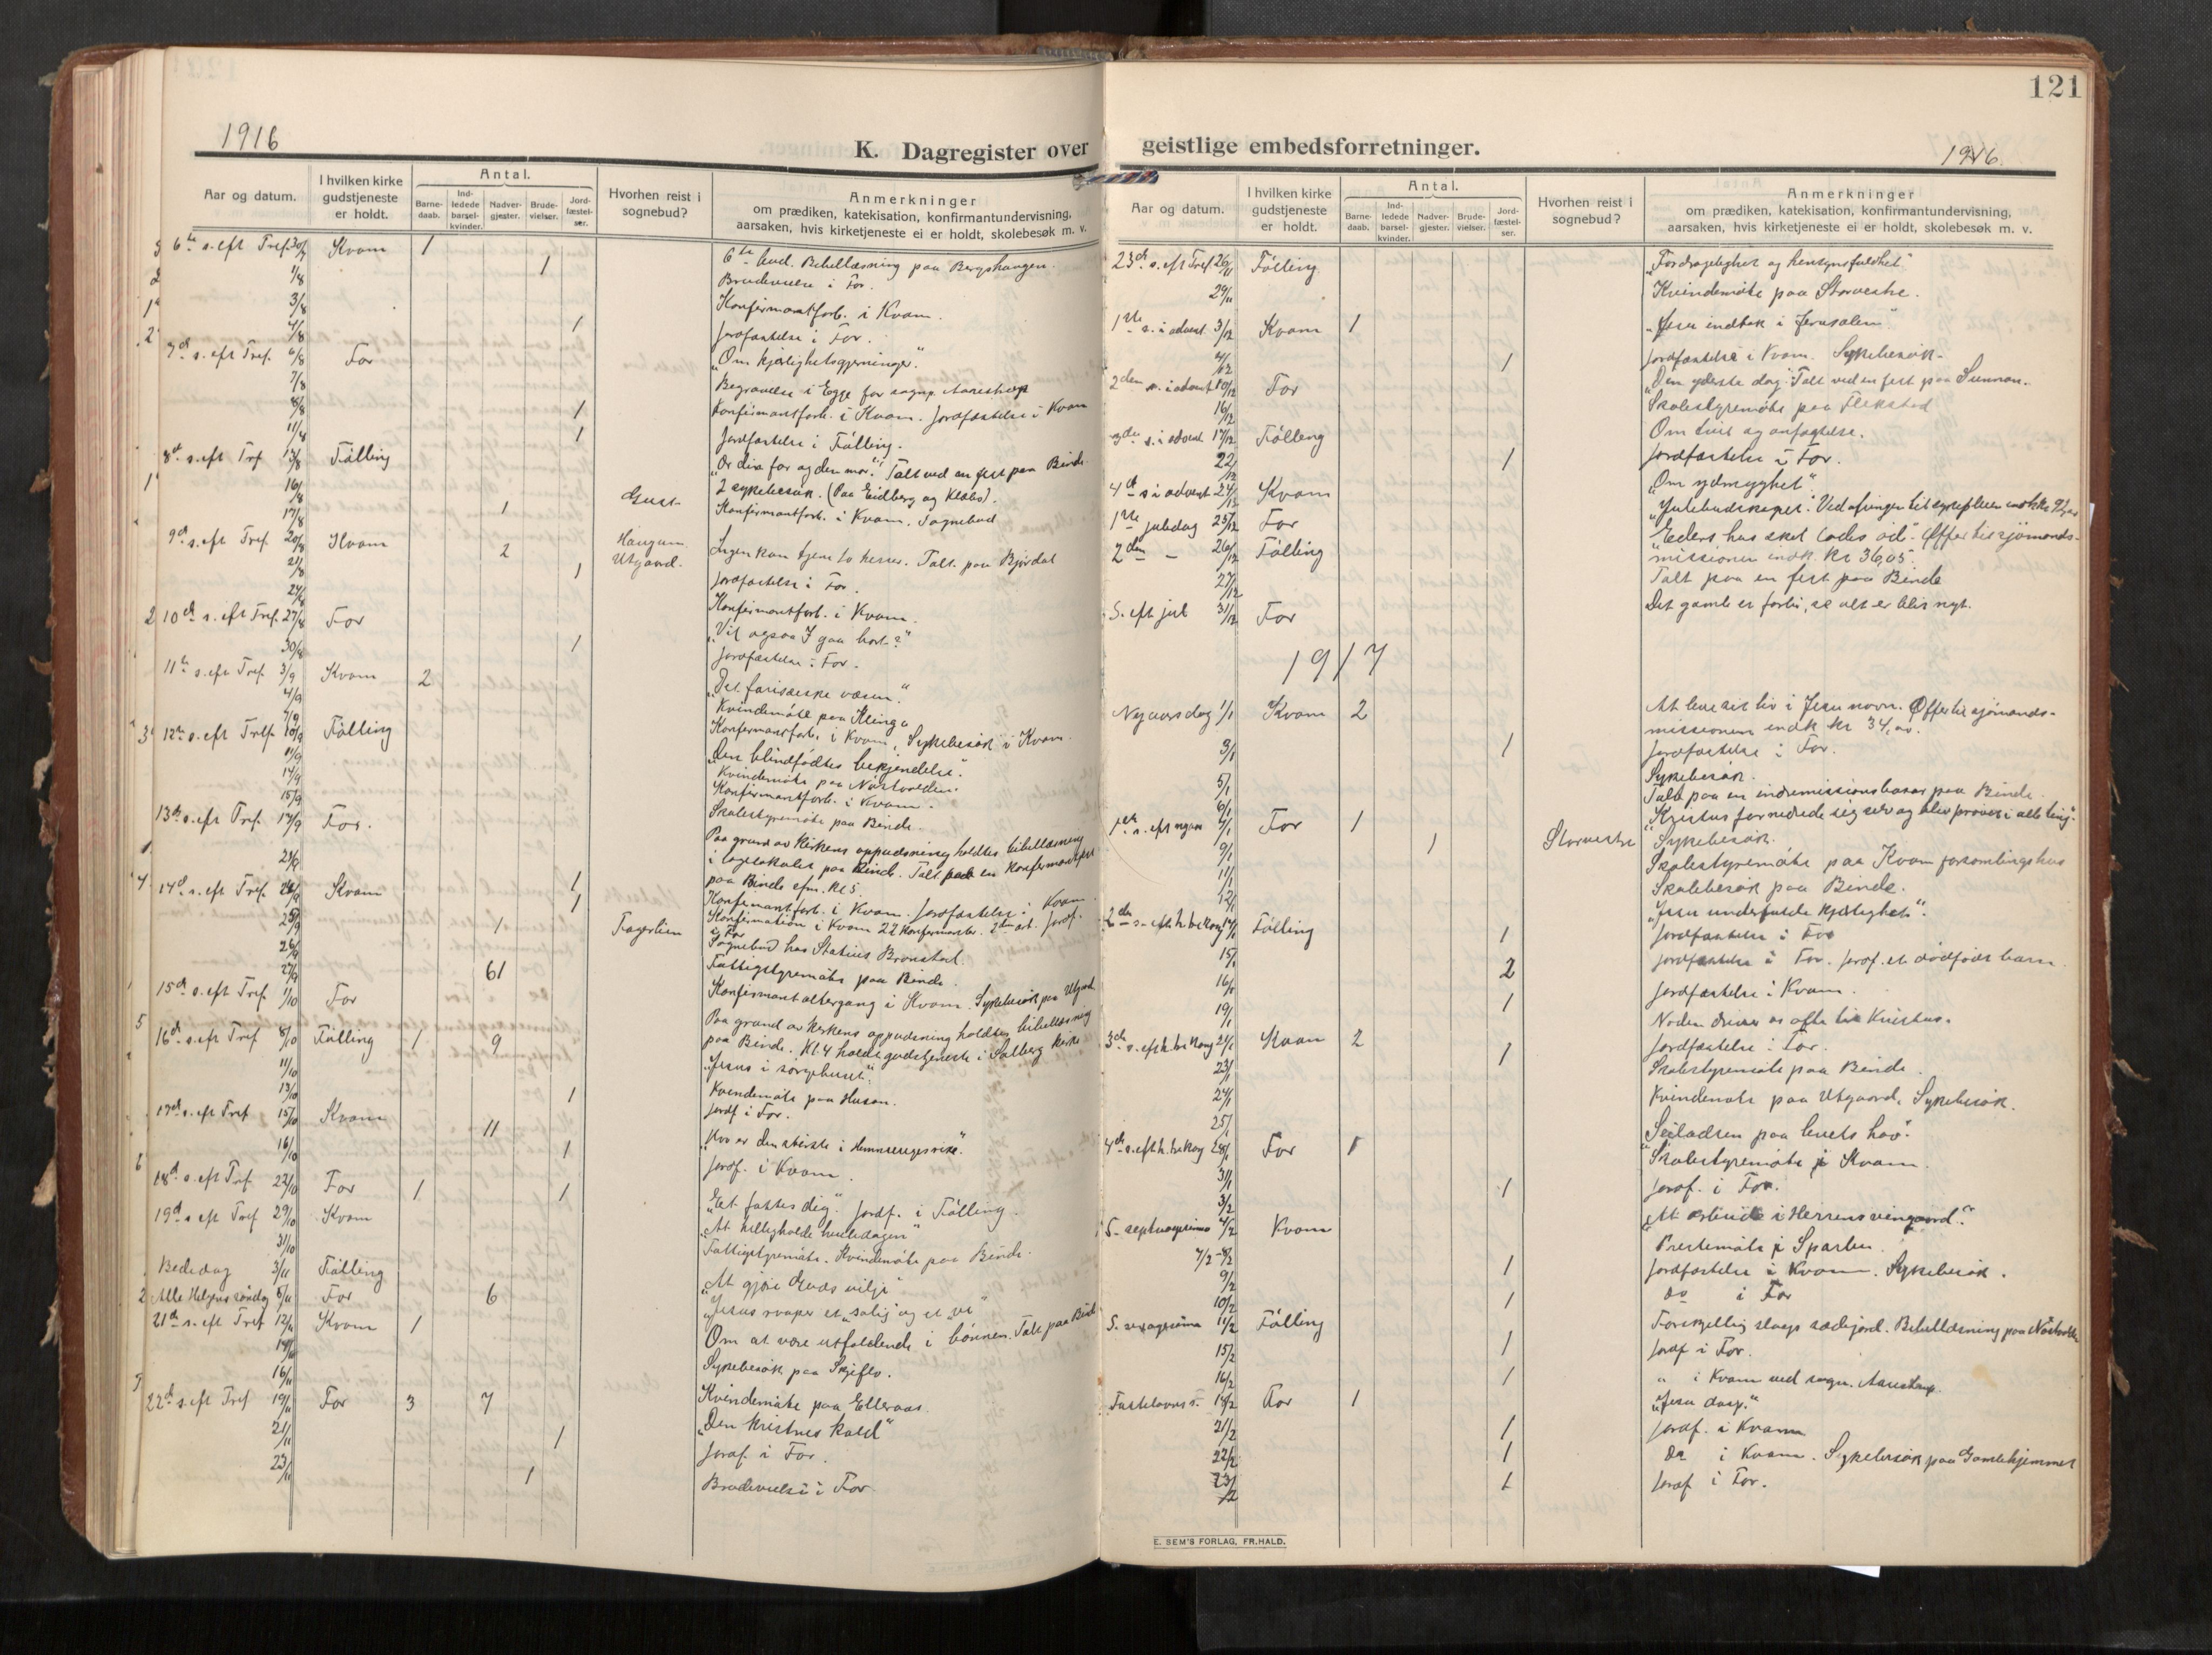 1916
K. Dagregister over
Aar og datum.
I hvilken kirke gudstjeneste er holdt.
Antal.
Barne-daab.
Ind-ledede barsel-kvinder.
Nadver-gjester.
Brude-vielser.
Jord-fæstel-ser.
Hvorhen reist i sognebud?
Anmerkninger
om prædiken, katekisation, konfirmantundervisning,
aarsaken, hvis kirketjeneste ei er holdt, skolebesøk m. v.
6te s. eft Tref. 30/7 Kvam 1 6te bud. Bibellæsning paa Bergshaugen.
1/8 1 Brudevielse i For.
3/8 Konfirmantforb. i Kvam.
4/8 1 Jordfæstelse i For.
7de s. eft Tref. 6/8 For "Om kjærlighetsgjerninger".
7/8 Begravelse i Egge for sognp. Aarestrup
8/8 1 Konfirmantforb. i Kvam. Jordfæstelse i Kvam
11/8 1 Jordfæstelse i Følling.
8de s. eft Tref 13/8 Følling "Ær din far og din mor". Talt ved en fest paa Binde.
16/8 2 sykebesøk. (Paa Eidberg og Klæbo).
17/8 1 Gust- Konfirmantforb. i Kvam. Sognebud
9de s. eft Tref 20/8 Kvam 2 Haugum Utgaard. Ingen kan tjene to herrer. Talt paa Bjørdal
21/8 1 Jordfæstelse i For.
24/8 Konfirmantforb. i Kvam.
10de s. eft Tref. 27/8 For "Vil ogsaa I gaa bort?"
30/8 1 Jordfæstelse i For.
11te s. eft Tref. 3/9 Kvam 2 "Det fariseiske væsen"
4/9 Kvindemøte paa Klinga
7/9 Konfirmantforb. i Kvam, Sykebesøk i Kvam.
12te s. eft Tref. 10/9 Følling "Den blindfødtes bekjendelse".
11/9 Kvindemøte paa Nøstvolden.
14/9 Konfirmantforb. i Kvam.
15/9 Skolestyremøte paa Binde.
13de s. eft Tref. 17/9 For. Paa grund av kirkens oppudsning holdtes bibellæsning
i lagslokalet paa Binde. Talt paa en konfirmantfest
paa Binde efm. kl 5
21/9 1 Konfirmantforb. i Kvam. Jordfæstelse i Kvam
14de s. eft Tref 24/9 Kvam 1 Konfirmation i Kvam 22 konfirmanter. Jordf.
i For
25/9 1 Fagerlien Sognebud hos Statius Brønstad.
26/9 Fattigstyremøte paa Binde.
27/9 61 Konfirmantaltergang i Kvam. Sykebesøk paa Utgaard
15de s. eft Tref. 1/10 For Paa grund av kirkens oppudsning holdtes bibellæsning
paa Binde. Kl. 4 holdt gudstjeneste i Salberg kirke
16de s. eft Tref 8/10 Følling 1 9 "Jesus i sørgehuset".
11/10 Kvindemøte paa Husan.
13/10 1 Jordf i For.
17de s. eft Tref 15/10 Kvam 11 "Hvo er den største i Himmeriges rike".
16/10 1 Jordf. i Kvam
18de s. eft Tref 22/10 For 1 1 "Eet fattes dig". Jordf. i Følling.
19de s. eft Tref 29/10 Kvam "At helligholde hviledagen"
31/10 Fattigstyremøte. Kvindemøte paa Binde.
Bededag 3/11 Følling "At gjøre Guds vilje"
Alle Helgens søndag 5/11 For 6 "Jesus roaper et "salig" og et "ve"
21de s. eft Tref 12/11 Kvam 1 Om at være utholdende i bønnen. Talt paa Binde
14/11 Sykebesøk paa Skjeflo.
16/11 Kvindemøte paa Elleraas.
22de s. eft Tref 19/11 For 3 7 "Den kristnes kald"
21/11 1 Jordf. i For.
23/11 1 Brudevielse i For
121
geistlige embedsforretninger.
1916.
Aar og datum.
I hvilken kirke gudstjeneste er holdt.
Antal.
Barne-daab.
Ind-ledede barsel-kvinder.
Nadver-gjester.
Brude-vielser.
Jord-fæstel-ser.
Hvorhen reist i sognebud?
Anmerkninger
om prædiken, katekisation, konfirmantundervisning,
aarsaken, hvis kirketjeneste ei er holdt, skolebesøk m. v.
23de s. eft Tref 26/11 Følling "Fordragelighet og hensynsfuldhet"
29/11 Kvindemøte paa Storvestre.
1ste s. i advent 3/12 Kvam 1 "Jesu indtok i Jerusalem"
4/12 1 Jordfæstelse i Kvam. Sykebesøk.
2den s. i advent 10/12 For "Den yderste dag". Talt ved en fest paa Sunnan.
16/12 Skolestyremøte paa Flekstad
3die s. i advent 17/12 Følling Om tvil og anfægtelse.
22/12 1 Jordfæstelse i For.
4de s. i advent 24/12 Kvam "Om ydmyghet"
1ste juledag 25/12 For "Julebudskapet". Ved ofringen til sykepleien indk. kr
2den - 26/12 Følling Eders hus skal lades øde". Offer til sjømands-
missionen indk. kr 36,05.
27/12 Talt paa en fest paa Binde
S. eft jul 31/12 For Det gamle er forbi, se alt er blit nyt.
1917
Nyaarsdag 1/1 Kvam 2 At leve sit liv i Jesu navn. Offer til sjømands-
missionen indk kr 34,
3/1 1 Jordfæstelse i For.
5/1 Sykebesøk.
6/1 Talt paa en indremissionsbasar paa Binde.
1ste s. eft nyaar 7/1 For 1 "Kristus fornedrede sig selv og blev prøvet i alle ting".
9/1 1 Storvestre Sykebesøk.
11/1 Skolestyremøte paa Kvam forsamlingshus
12/1 Skolebesøk paa Binde.
2den s. eft h. tre kong 14/1 Følling "Jesu underfulde kjærlighet".
15/1 1 Jordfæstelse i For
16/1 2 Jordfæstelse i For. Jordf. et dødfødt barn.
19/1 1 Jordfæstelse i Kvam.
3die s. eft h. tre kong 21/1 Kvam 2 Nøden driver os ofte til Kristus.
23/1 1 Jordfæstelse i For.
24/1 Skolestyremøte paa Binde.
25/1 Kvindemøte paa Utgaard. Sykebesøk.
4de s. eft h. tre kong 28/1 For 1 "Seiladsen paa livets hav".
31/1 Skolestyremøte i Kvam.
3/2 1 Jordf. i For.
S. septuagesima 4/2 Kvam "At arbeide i Herrens vingaard".
7/2-8/2 Prestemøte i Sparbu.
9/2 1 Jordfæstelse i Kvam. Sykebesøk.
10/2 1 do i For
S. sexagesima 11/2 Følling Forskjellig slags sædejord. Bibellæsning paa Nøstvolden
15/2 1 Jordf i For.
16/2 1 " i Kvam ved sogn. Aarestrup.
Fastelavns s. 18/2 For 1 "Jesu daap."
21/2 1 Jordf. i Kvam
22/2 1 do i Kvam. Sykebesøk paa Gamlehjemmet
23/2 1 Jordf i For.
E. SEM'S FORLAG, FR.HALD.